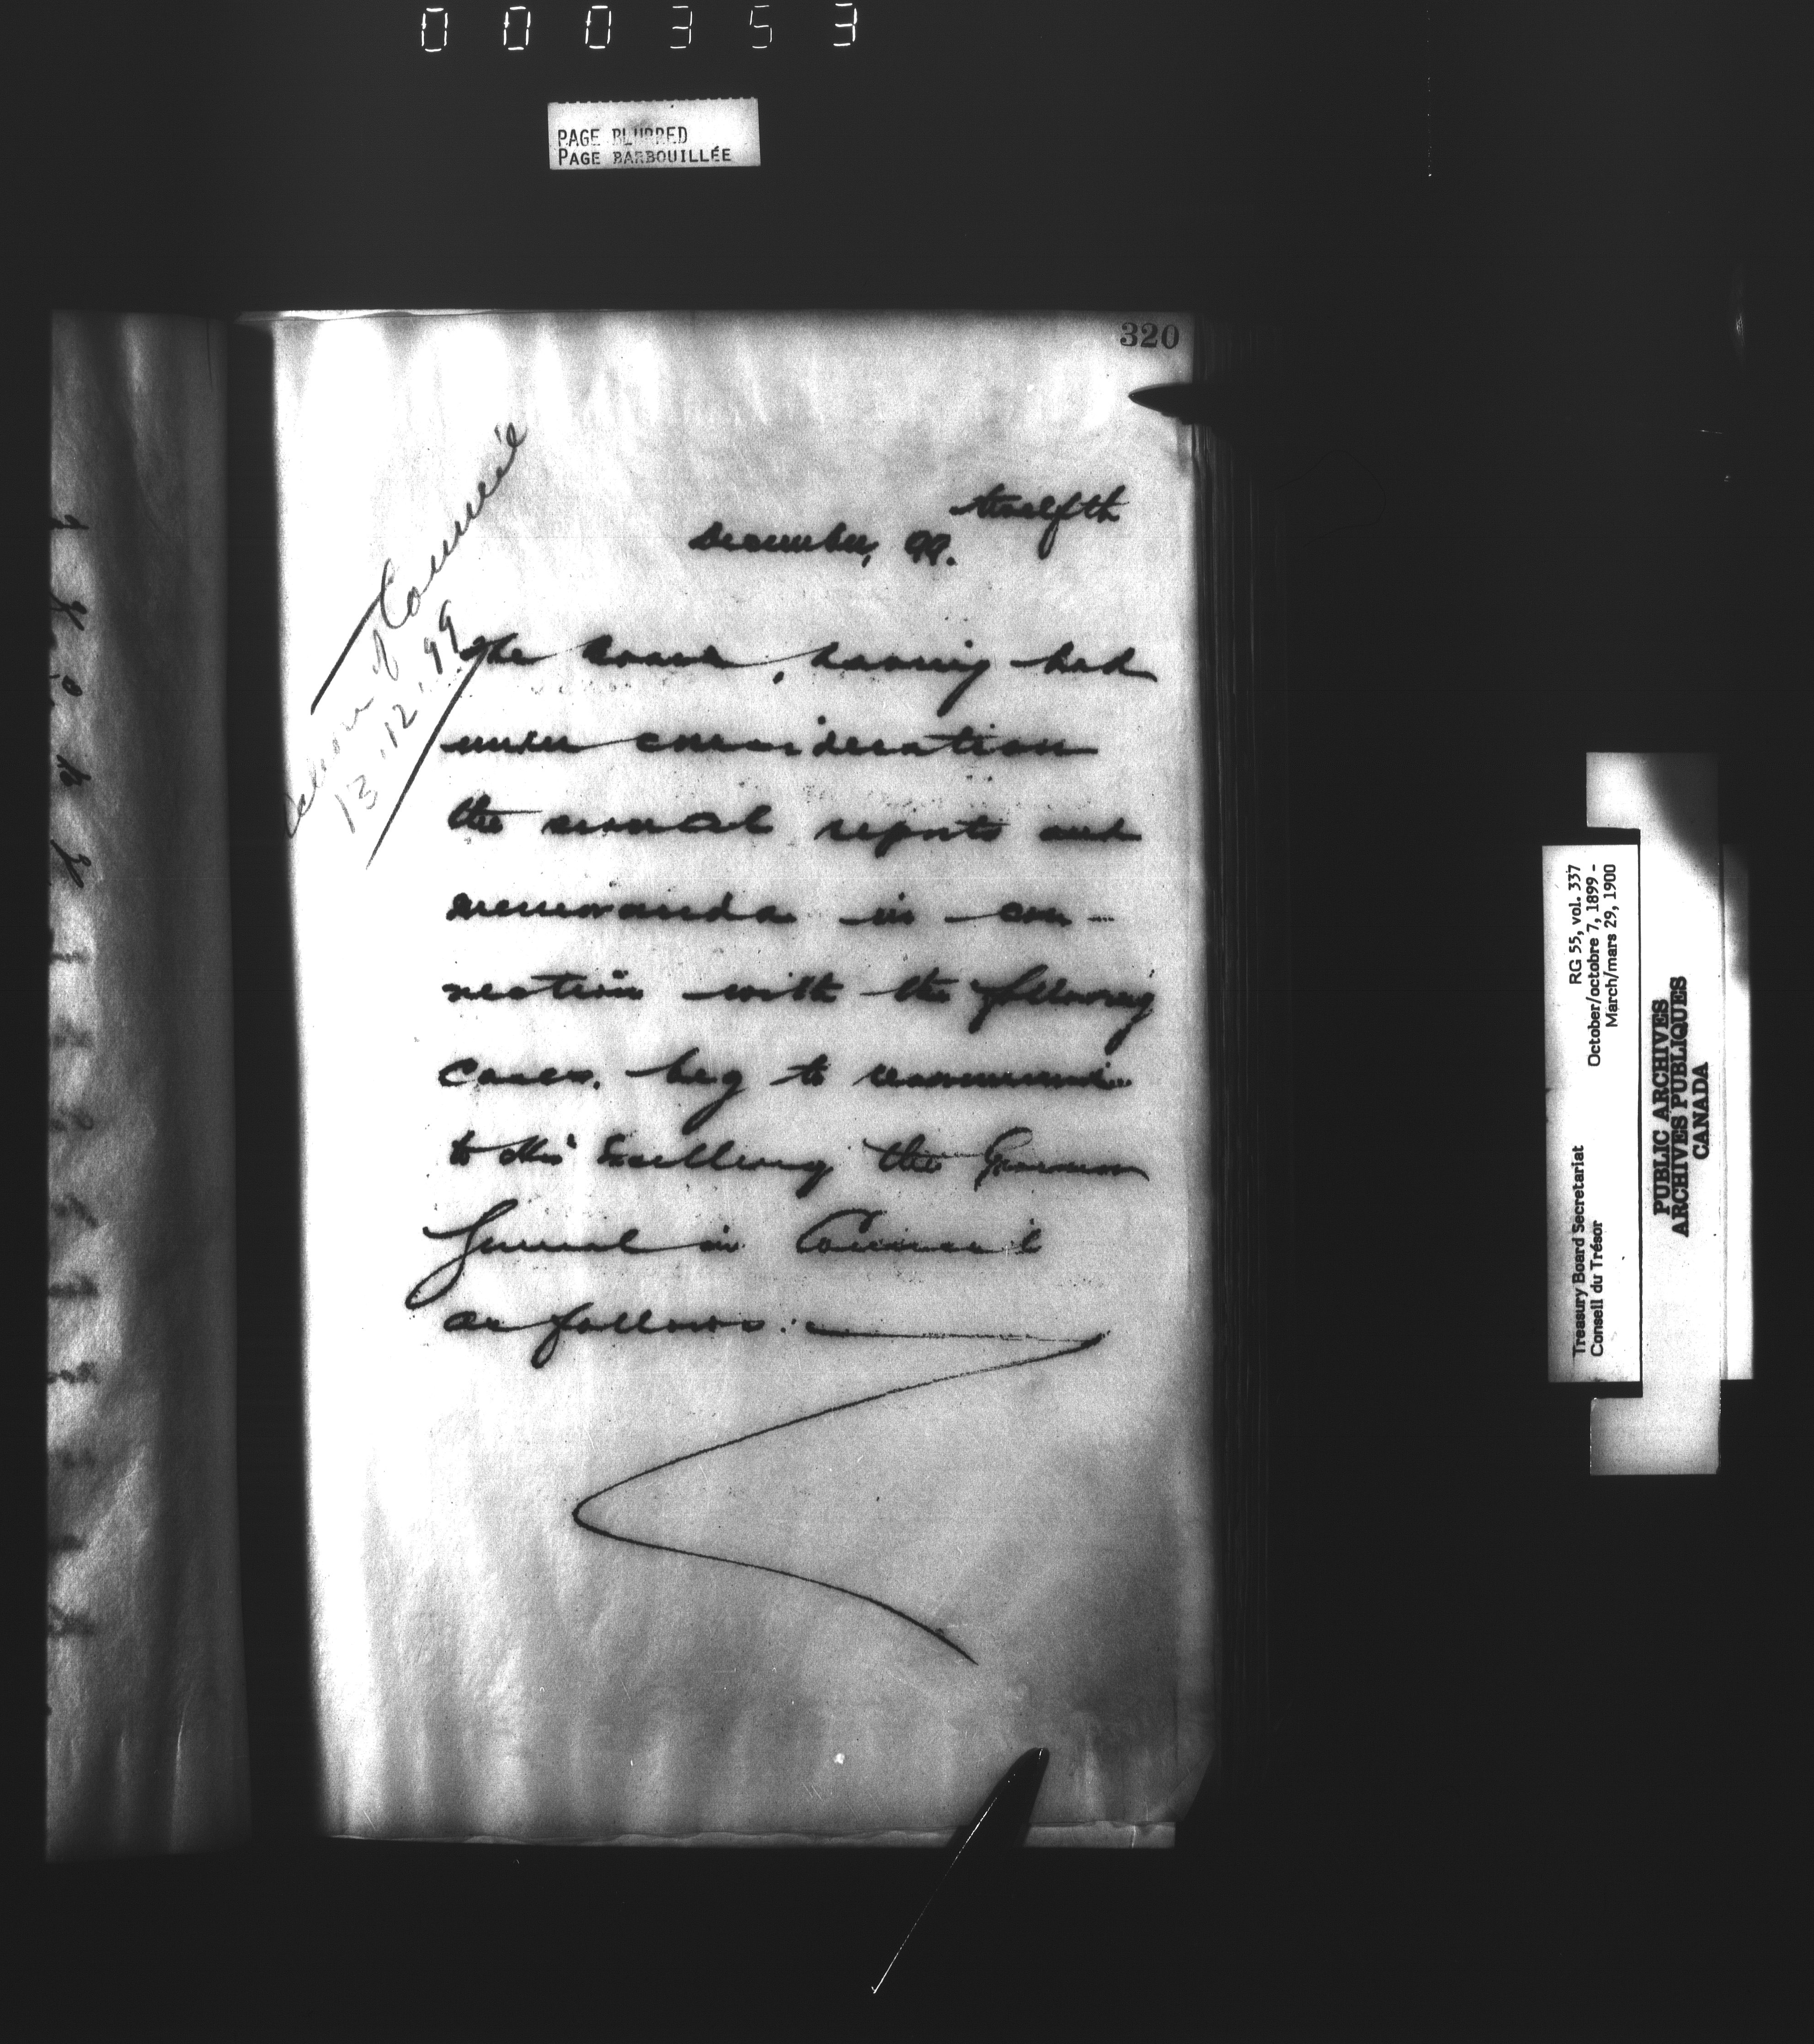 000353
PAGE BLURRED
PAGE BARBOUILLÉE
320
Council
of
13.12.99
twelfth
December, 99.
The Board, having had
under consideration
the several reports and
memoranda in con-
nection with the following
cases, beg to recommend
to His Excellency the Governor
General in Council
as follows:
Treasury Board Secretariat RG 55, vol. 337
Conseil du Trésor October/octobre 7, 1899 -
March/mars 29, 1900
PUBLIC ARCHIVES
ARCHIVES PUBLIQUES
CANADA